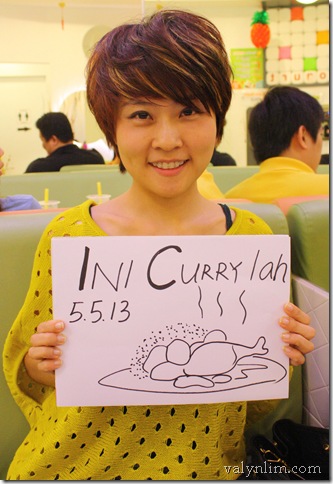 INI CURRY lah
5.5.13
valynlim.com